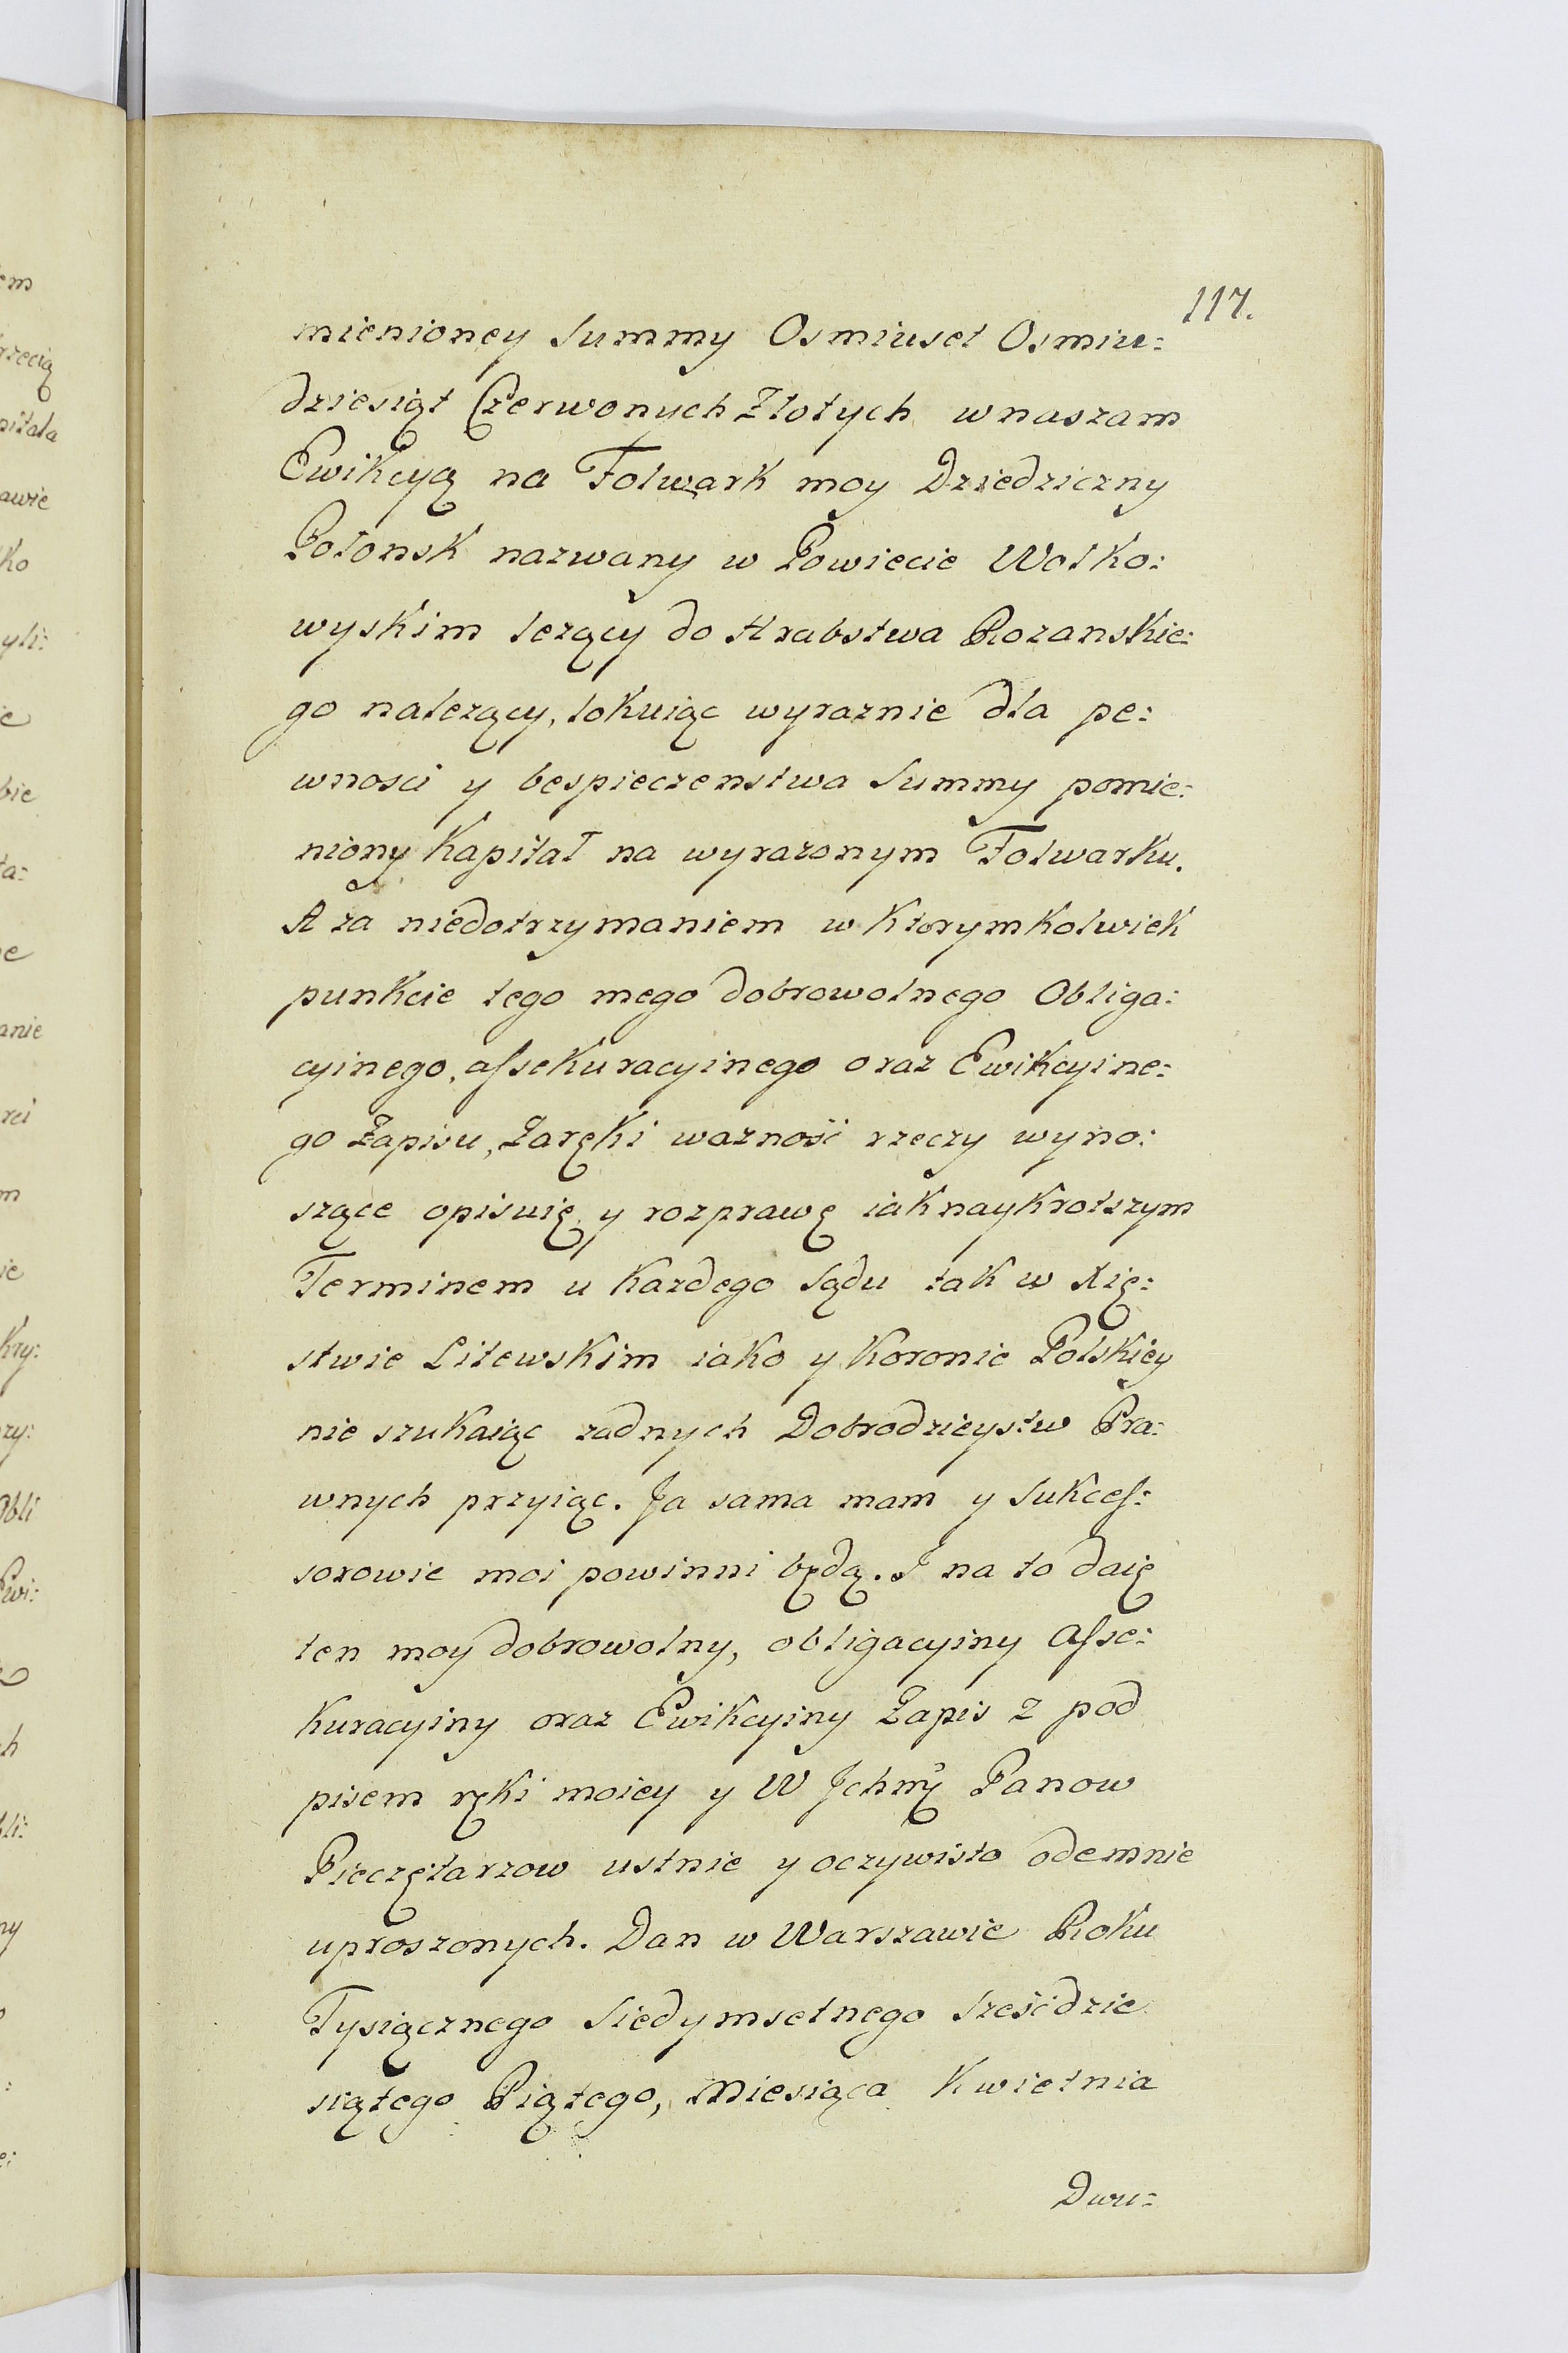 117.
mienioney Summy Osmiuset Osmiu:
dziesiąt Czerwonych Złotych wnaszam
Ewikcyą na Folwark moy Dziedziczny
Połonsk nazwany w Powiecie Wołko:
wyskim lezący do Hrabstwa Rozanskie:
go nalezący, lokuiąc wyraznie dla pe:
wnosci y bespieczenstwa Summy pomie:
niony Kapitał na wyrazonym Folwarku.
A za niedotrzymaniem w Ktorymkolwiek
punkcie tego mego dobrowolnego Obliga:
cyinego, assekuracyinego oraz Ewikcyine:
go Zapisu, Zaręki waznosć rzeczy wyno:
szące opisuię y rozprawę iak naykrotszym
Terminem u Kazdego Sądu tak w Xię:
stwie Litewskim iako y Koronie Polskiey
nie szukaiąc zadnych Dobrodzieystw Pra:
wnych przyiąc. Ja sama mam y Sukces:
sorowie moi powinni będą. I na to daię
ten moy dobrowolny, obligacyiny Asse:
kuracyiny oraz Ewikcyiny Zapis z pod
pisem ręki moiey y W Jchmę Panow
Pieczętarzow ustnie y oczywisto odemnie
uproszonych. Dan w Warszawie Roku
Tysiącznego Siedymsetnego Sześćdzie
siątego Piątego, Miesiąca Kwietnia
Dwu: